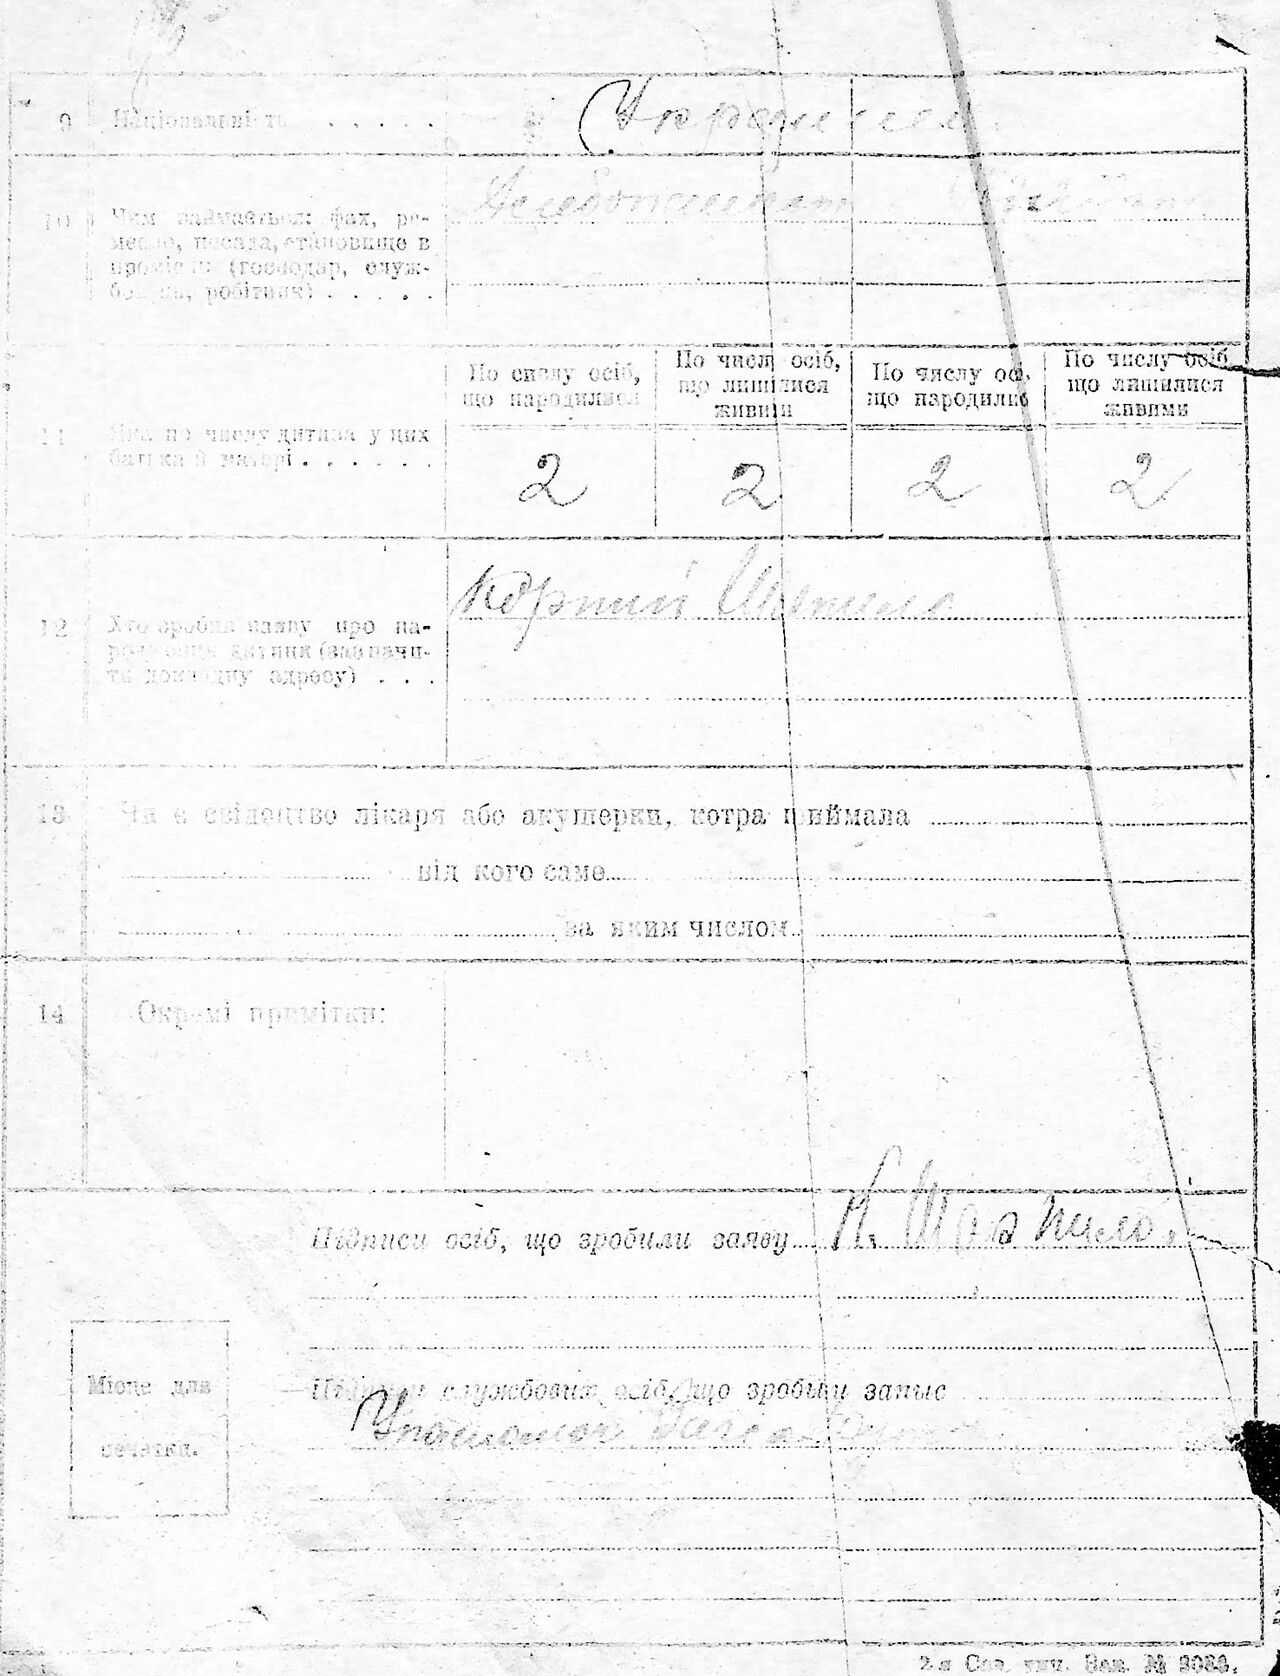 9 Національність . . . . .
Українец.
10 Чим займається: фах, ре-
месло, посада, становище в
промислі (господар, служ-
бовець, робітник) . . . . .
По числу осіб, що народилися
По числі осіб, що лишилися живими
По числу осіб, що народилис
По числу осіб, що лишилися живими
11 Яка по числу дитина у цих
батька й матері . . . . . .
2 2 2 2
12 Хто зробив заяву про на-
родження дитини (зазначи-
ти докладну адресу) . . .
Корний
13 Чи є свідоцтво лікаря або акушерки, котра приймала
від кого саме
за яким числом
14 Окремі примітки:
Підписи осіб, що зробили заяву К. Шаапило.
Місце для
печатки.
Підписи службових осіб, що зробили запис
2-я Сов. тип. Зак. № 3033.